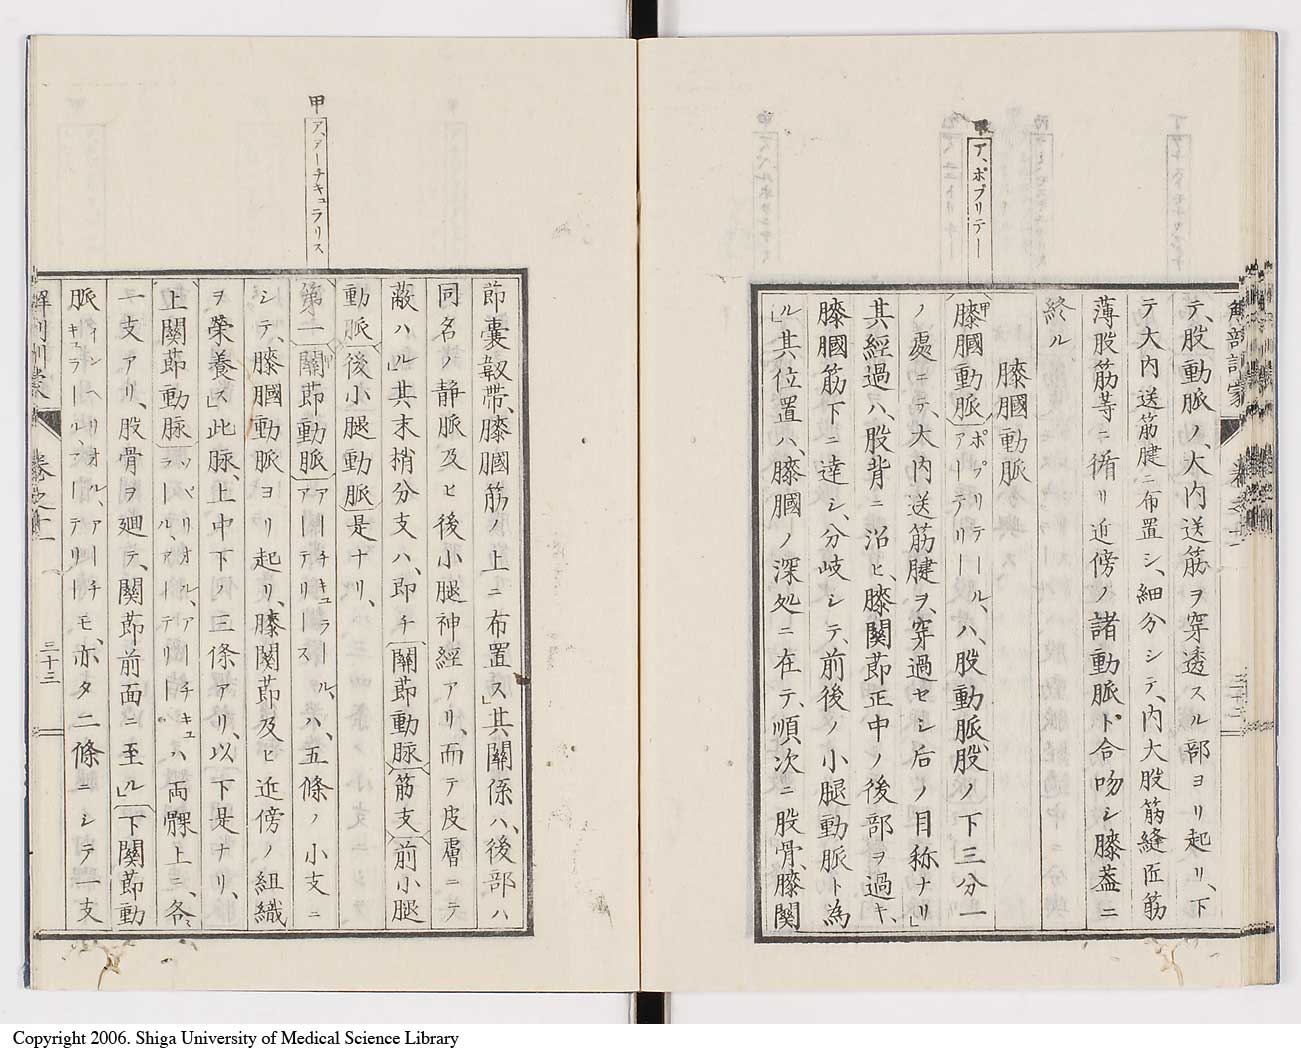 甲
ア、ポプリテー
解部訓蒙
巻之十二
三十二
テ、股動脈ノ、大内送筋ヲ穿透スル部ヨリ起リ、下
テ大内送筋腱ニ布置シ、細分シテ、内大股筋縫匠筋
薄股筋等ニ循リ近傍ノ諸動脈ト合吻シ膝葢ニ
終ル
膝膕動脈
甲膝膕動脈ポプリテール、アーテリーハ、股動脈、股ノ下三分一
ノ處ニテ、大内送筋腱ヲ、穿過セシ后ノ目称ナリ」
其經過ハ、股背ニ沿ヒ、膝関節正中ノ後部ヲ過キ、
膝膕筋下ニ達シ、分岐シテ、前後ノ小腿動脈ト為
ル」其位置ハ、膝膕ノ深処ニ在テ、順次ニ股骨、膝関
甲
ア、アーチキュラリス
節囊靱帶、膝膕筋ノ上ニ布置ス」其關係ハ、後部ハ
同名ノ静脈及ヒ後小腿神經アリ、而テ皮膚ニテ
蔽ハル」其末梢分支ハ、即チ關節動脈筋支前小腿
動脈後小腿動脈是ナリ、
第一甲關節動脈アーチキュラール、アーテリースハ、五條ノ小支ニ
シテ、膝膕動脈ヨリ起リ、膝関節及ヒ近傍ノ組織
ヲ榮養ス」此脉、上中下ノ三條アリ、以下是ナリ、
上關節動脉ソッペリオル、アーチキュラール、アーテリーハ両髁上ニ、各々
一支アリ、股骨ヲ廻テ、關節前面ニ至ル」下關節動
脈インヘリオル、アーチキュラール、アーテリーモ、亦タ二條ニシテ一支
三十三
Copyright 2006. Shiga University of Medical Science Library